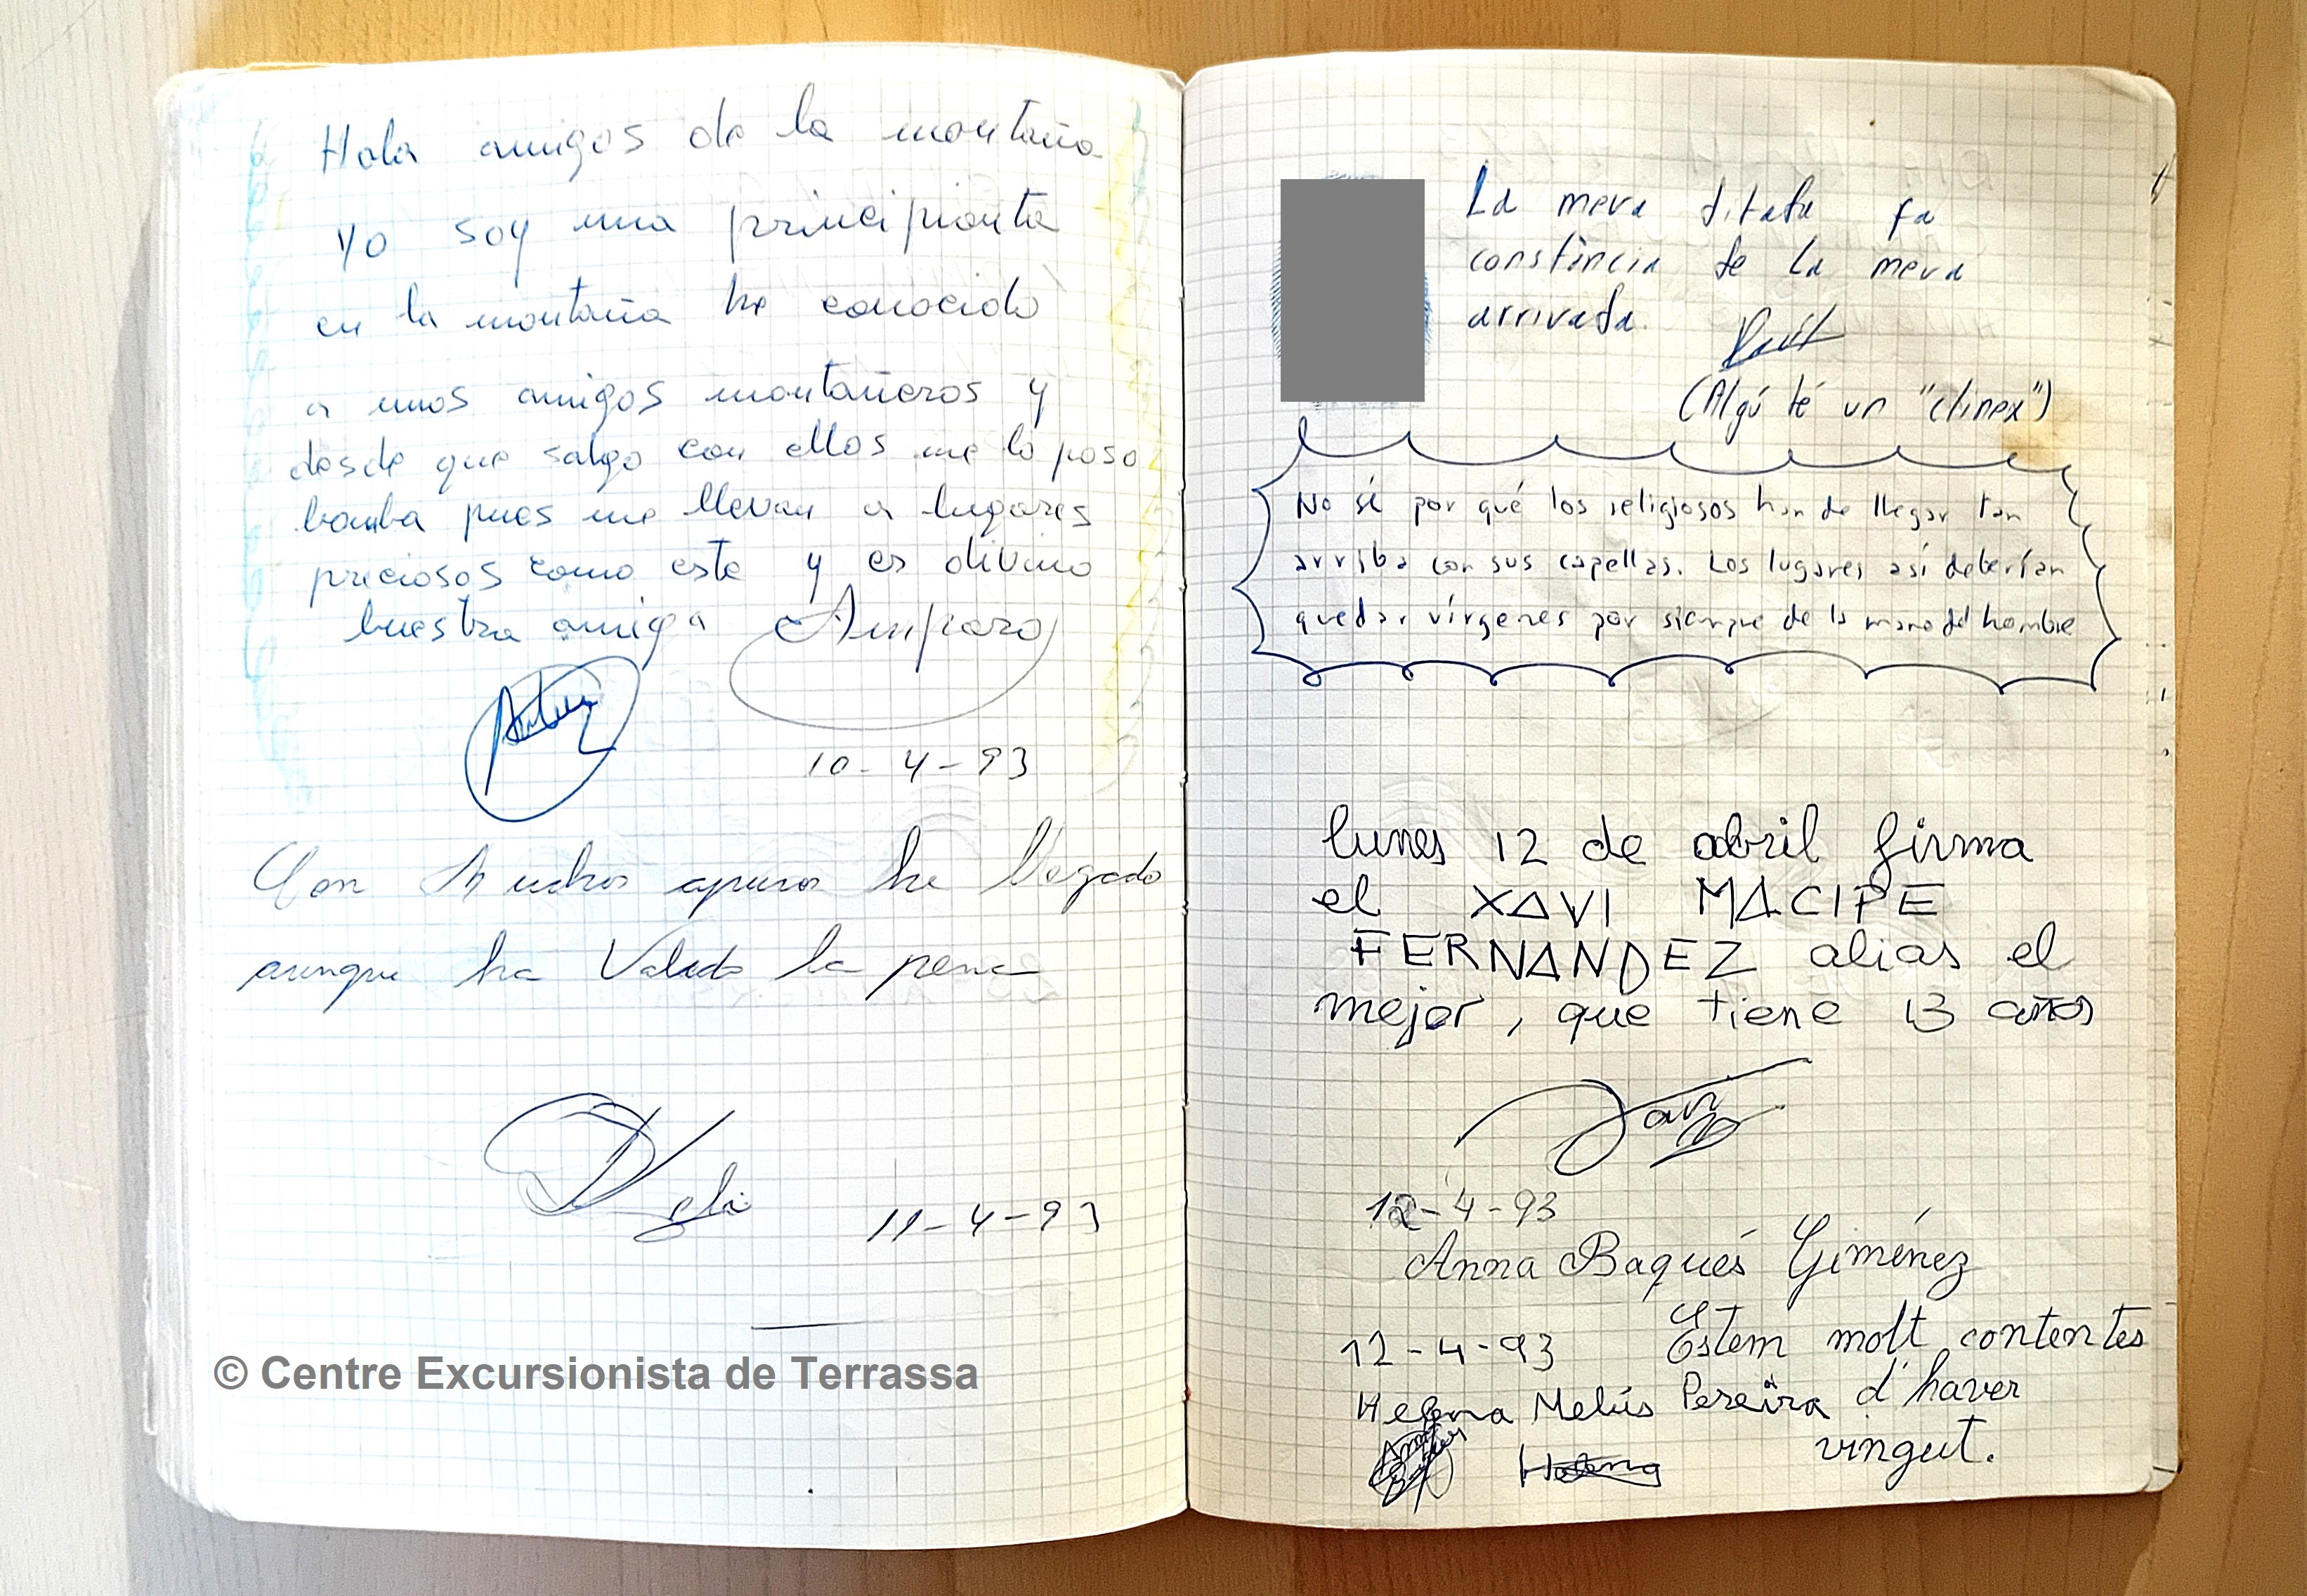 Hola amigos de la montaña
yo soy una principianta
en la montaña he conocido
a unos amigos montañeros y
desde que salgo con ellos me lo poso
bomba pues me llevan a lugares
preciosos como este y es divino
buestra amiga Amparo
10-4-93
Con Muchos apuros he llegado
aunque ha Valido la pena
11-4-93
© Centre Excursionista de Terrassa
La meva ditada fa
constància de la meva
arrivada.
(Algú té un "clinex")
No sé por qué los religiosos han de llegar tan
arriba con sus capellas. Los lugares así deberían
quedar vírgenes por siempre de la mano del hombre
lunes 12 de abril firma
el XAVI MACIPE
FERNANDEZ alias el
mejor, que tiene 13 años
Xavi
12-4-93
Anna Baqués Giménez
12-4-93 Estem molt contentes
Helena Melús Pereira d'haver
vingut.
Helena